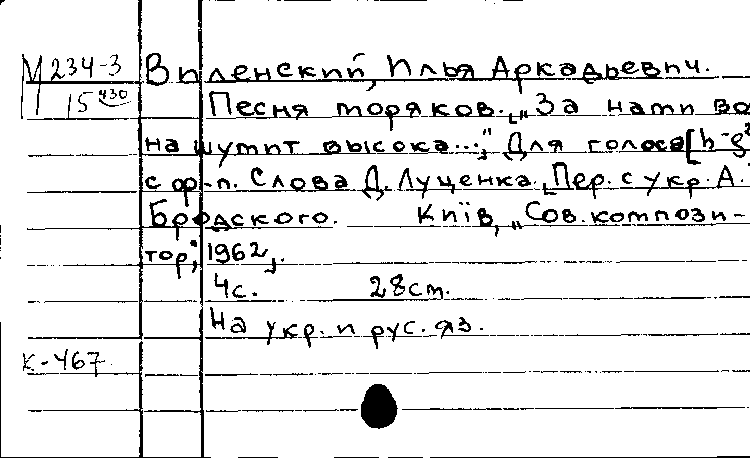 М 234-3
15 430
Виленский, Илья Аркадьевич.
Песня моряков. „За нами во
на шумит высока..." Для голоса [h-g²
с ф-п. Слова Д. Луценка. [Пер. с укр. А.
Бродского. Київ, „Сов. компози-
тор", 1962].
4с. 28cm.
На укр. и рус. яз.
К-467